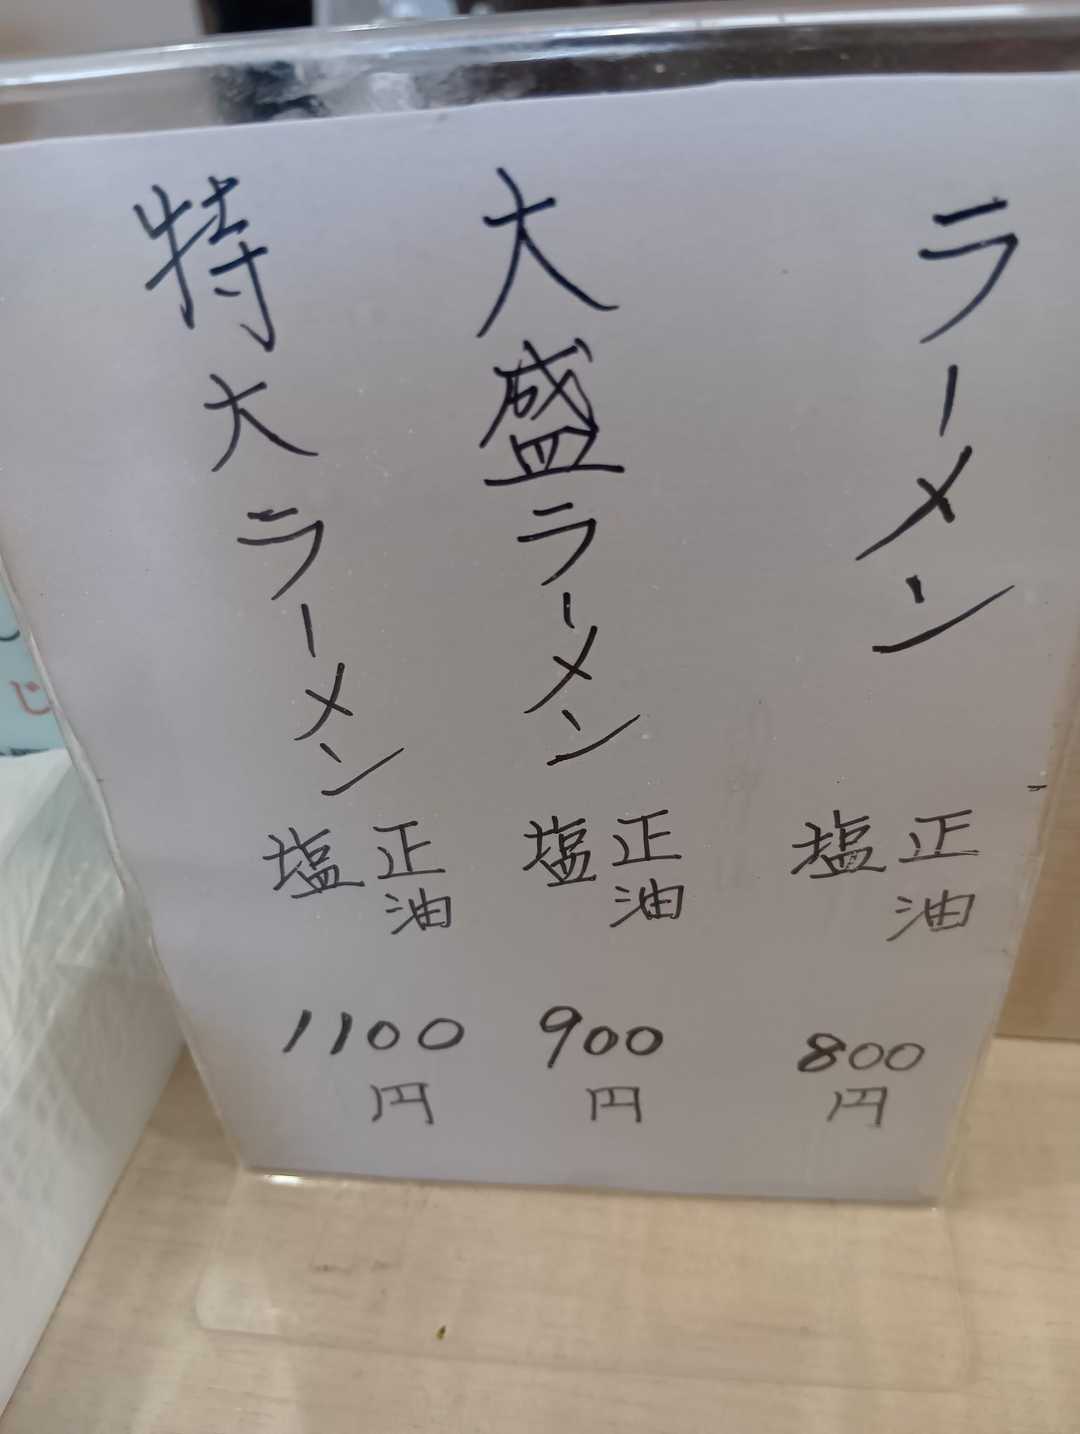 ラーメン
正油
塩
800
円
大盛ラーメン
正油
塩
900
円
特大ラーメン
正油
塩
1100
円
じ